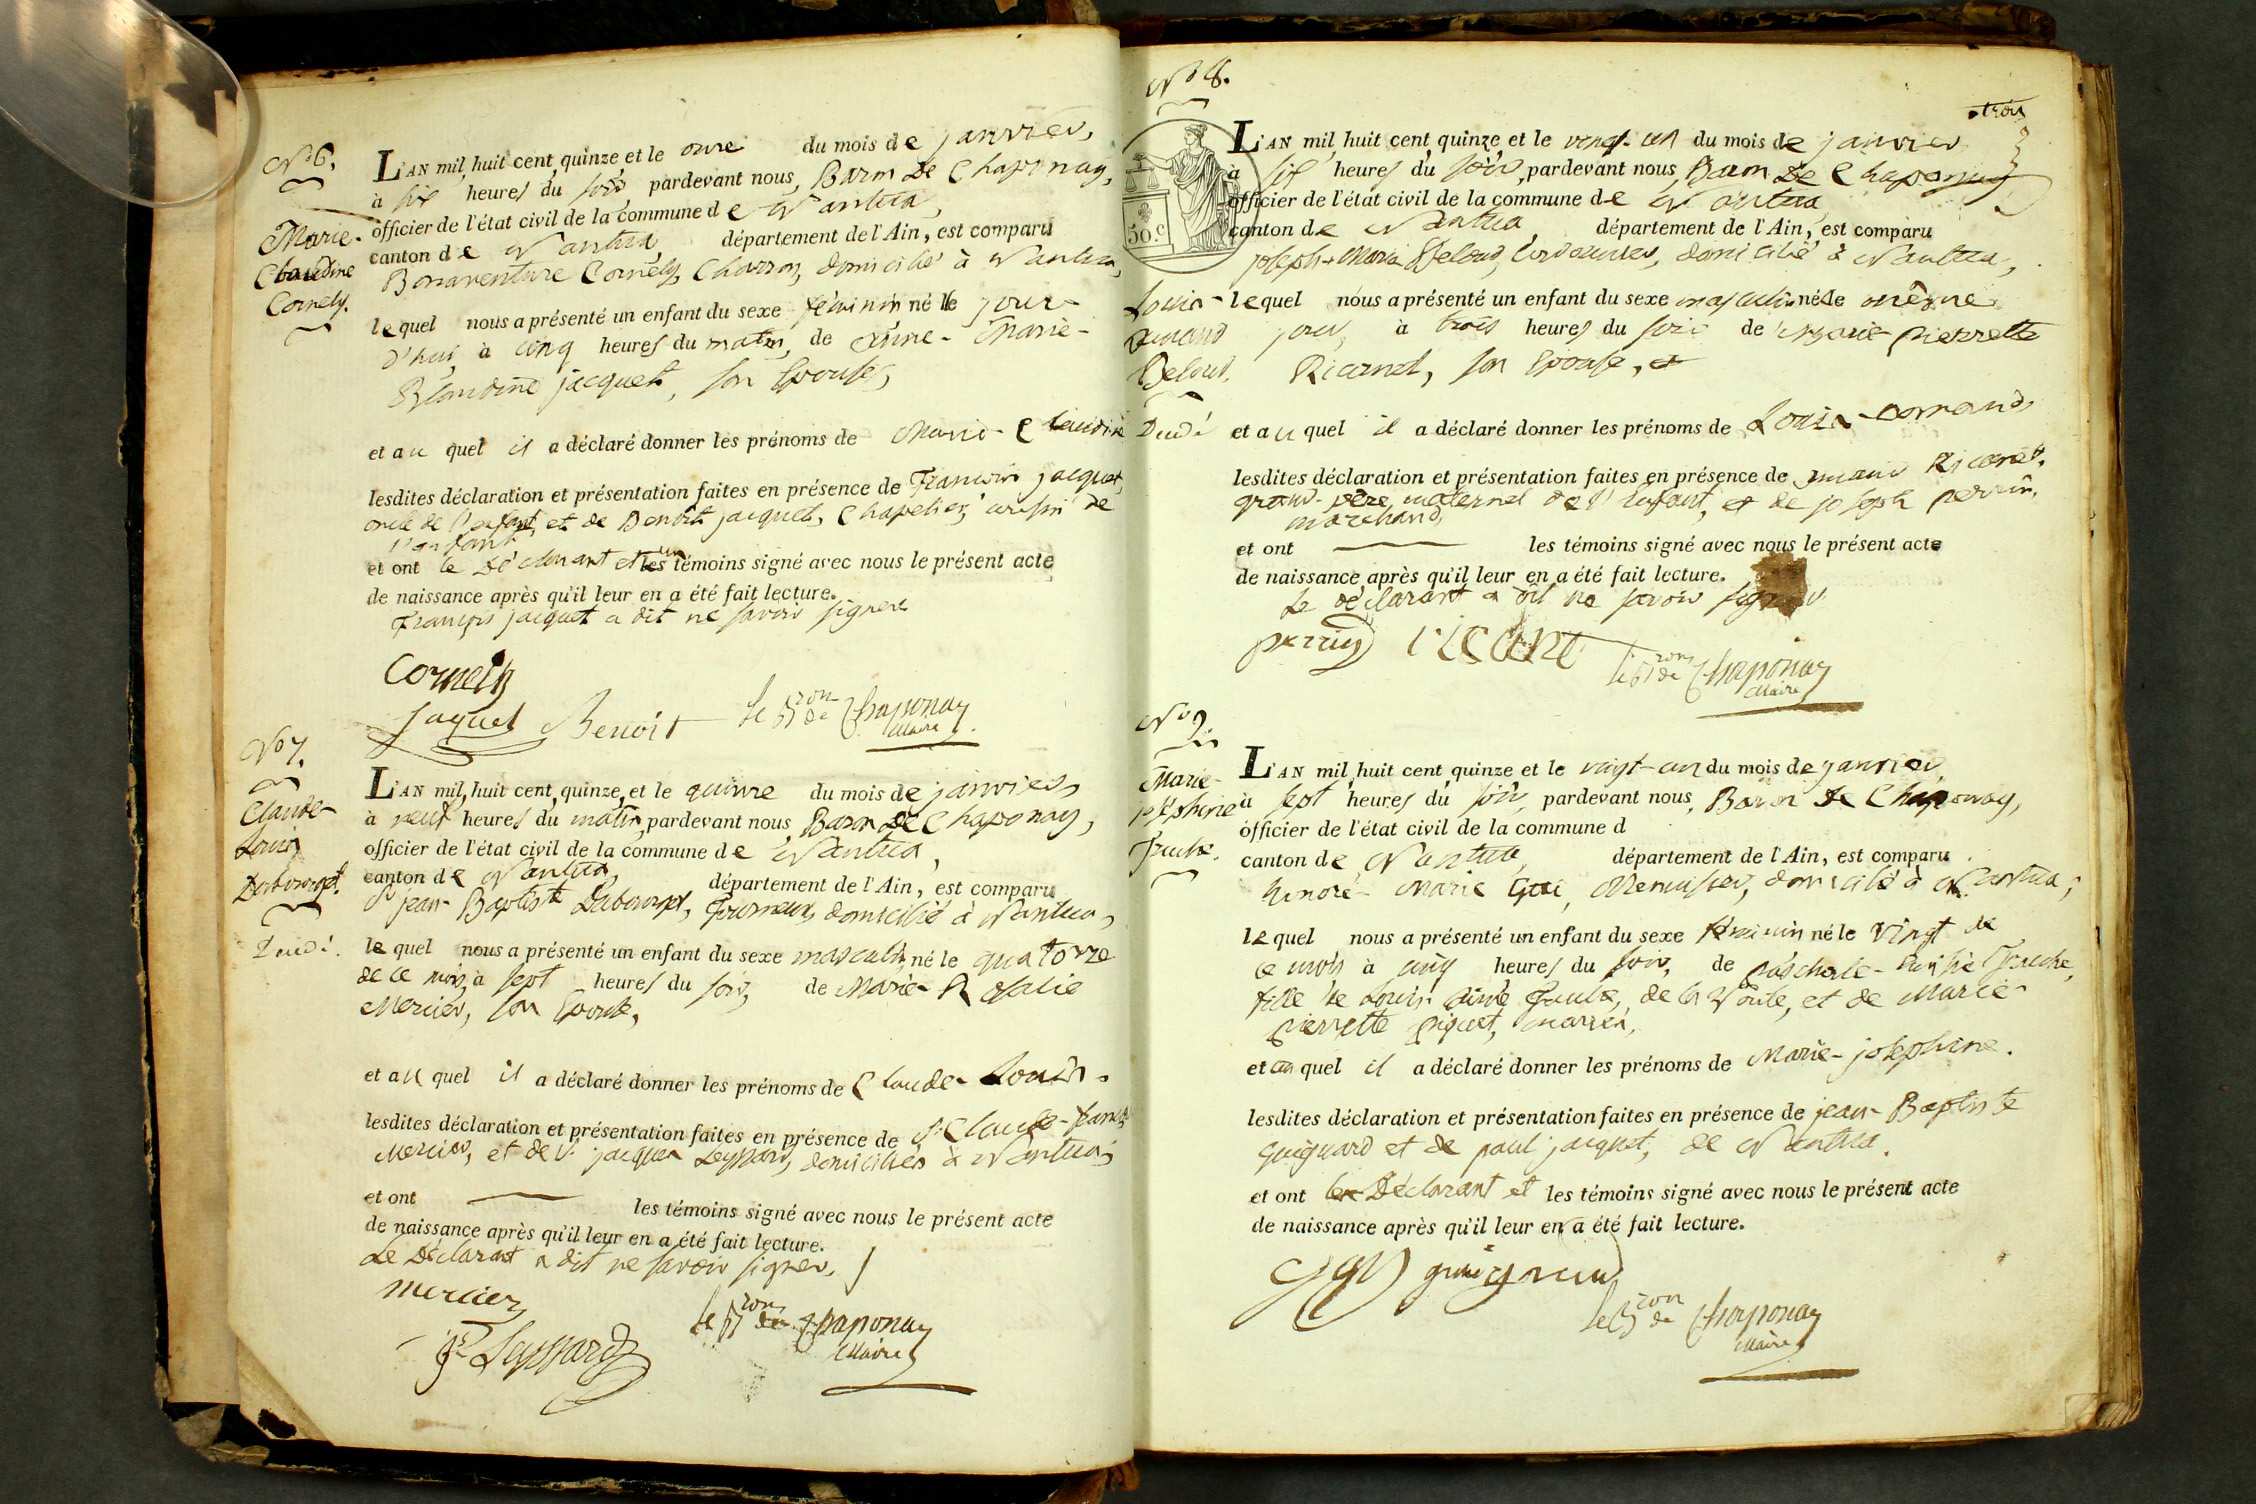 N° 6.
Marie-
Claudine
Cornely.
L'AN mil huit cent quinze et le onze du mois de janvier,
à six heures du soir pardevant nous, Baron De Chaponay,
officier de l'état civil de la commune de Nantua,
canton de Nantua, département de l'Ain, est comparu
Bonaventure Cornely, Charron, domicilié à Nantua,
lequel nous a présenté un enfant du sexe féminin né le jour
d'hui, à cinq heures du matin, de Anne-Marie-
Blandine jacquet, son Epouse,
et auquel il a déclaré donner les prénoms de Marie-Claudine
lesdites déclaration et présentation faites en présence de François jacquet,
oncle de l'enfant, et de Benoît jacquet, Chapelier, cousin de
l'enfant
et ont le Déclarant et un les témoins signé avec nous le présent acte
de naissance après qu'il leur en a été fait lecture.
François jacquet a dit ne savoir signer
Cornely
Jaquet Benoit le Bron de Chaponay
Maire
N° 7.
Claude-
Louis
Debourget.
L'AN mil huit cent quinze, et le quinze du mois de janvier,
à neuf heures du matin, pardevant nous Baron De Chaponay,
officier de l'état civil de la commune de Nantua,
canton de Nantua, département de l'Ain, est comparu
Sr jean-Baptiste Debourget, Tourneur, domicilié à Nantua,
lequel nous a présenté un enfant du sexe masculin, né le quatorze
de ce mois, à sept heures du soir, de Marie-Rosalie
Mercier, son Epouse,
et auquel il a déclaré donner les prénoms de Claude-Louis.
lesdites déclaration et présentation faites en présence de Sr Claude-françois
Mercier, et de Sr jacques Leyssard, domiciliés à Nantua,
et ont les témoins signé avec nous le présent acte
de naissance après qu'il leur en a été fait lecture.
Le Déclarant a dit ne savoir signer.
mercier
le Bron de Chaponay
Maire
Leyssard
N° 8.
trois
50.c
Louis-
Armand
Beloud.
L'AN mil huit cent quinze, et le vingt-un du mois de janvier
à six heures du soir, pardevant nous, Baron De Chaponay
officier de l'état civil de la commune de Nantua
canton de Nantua, département de l'Ain, est comparu
joseph-Marie Beloud, Cordonnier, domicilié à Nantua,
lequel nous a présenté un enfant du sexe masculin né le même
jour, à trois heures du soir de Marie-pierrette
Ricanet, son Epouse,
et auquel il a déclaré donner les prénoms de Louis-armand,
lesdites déclaration et présentation faites en présence de Ricanet,
grand-père maternel de l'Enfant, et de joseph perrin,
marchand,
et ont les témoins signé avec nous le présent acte
de naissance après qu'il leur en a été fait lecture.
Le déclarant a dit ne savoir signer
perrin ricanet le Bron de Chaponay
Maire
N° 9.
Marie-
josephine
L'AN mil huit cent quinze et le vingt-un du mois de janvier,
à sept heures du soir, pardevant nous, Baron De Chaponay,
officier de l'état civil de la commune d
canton de Nantua, département de l'Ain, est comparu
honoré-Marie Gai, Menuisier, domicilié à Nantua;
lequel nous a présenté un enfant du sexe féminin né le vingt de
ce mois à cinq heures du soir, de
fille de Louis-aimé de la Voute, et de Marie-
pierrette piquet, mariés,
et auquel il a déclaré donner les prénoms de Marie-josephine.
lesdites déclaration et présentation faites en présence de jean-Baptiste
guignard et de paul jacquet, de Nantua.
et ont le Déclarant et les témoins signé avec nous le présent acte
de naissance après qu'il leur en a été fait lecture.
gay guignard
le Bron de Chaponay
Maire